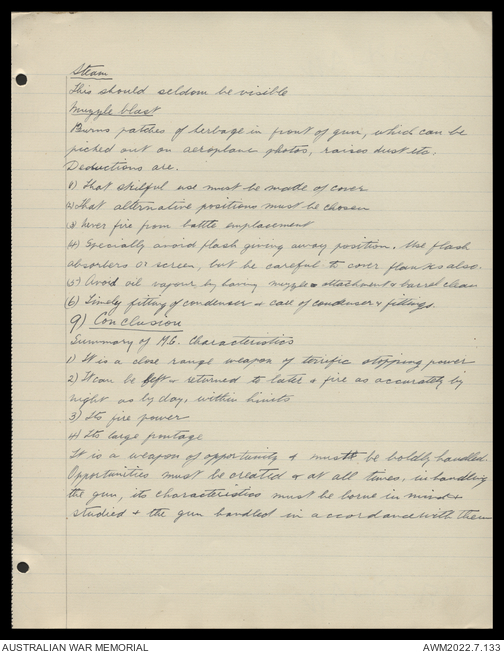 Steam
This should seldom be visible
Muzzle blast
Burns patches of herbage in front of gun, which can be
picked out on aeroplane photos, raises dust etc.
Deductions are.
1) That skilful use must be made of cover
2) That alternative positions must be chosen
(3) Never fire from battle emplacement
(4) Specially avoid flash giving away position. Use flash
absorbers or screen, but be careful to cover flanks also.
(5) Avoid oil vapour, by having muzzle attachment & barrel clean
(6) Timely fitting of condenser & care of condenser fittings.
9) Conclusion
Summary of M.G. Characteristics
1) It is a close range weapon of terrific stopping power
2) It can be left & returned to later & fire as accurately by
night as by day, within limits
3) Its fire power
4) Its large
It is a weapon of opportunity & must be boldly handled.
Opportunities must be created & at all times, in handling
the gun, its characteristics must be borne in mind &
studied & the gun handled in accordance with them
AUSTRALIAN WAR MEMORIAL
AWM2022.7.133